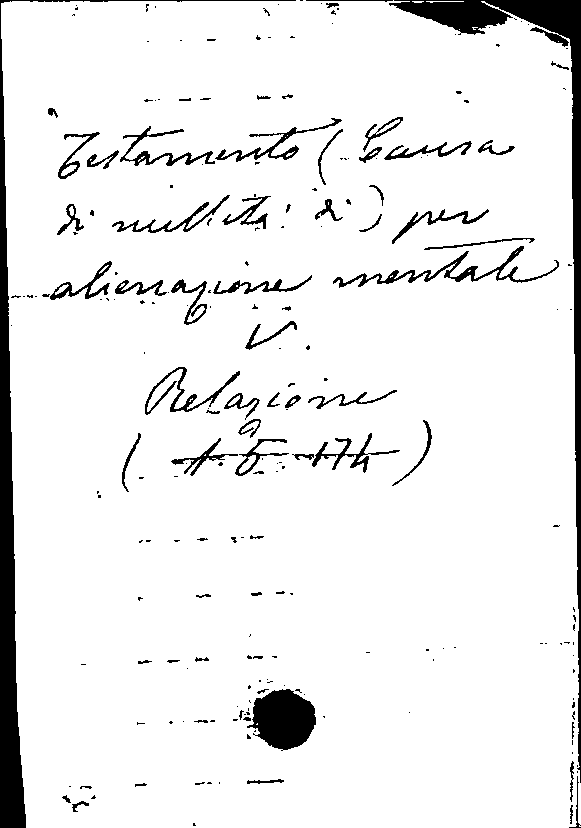 Testamento (Causa
di nullità di) per
alienazione mentale
V.
Relazione
(1. 5 174)